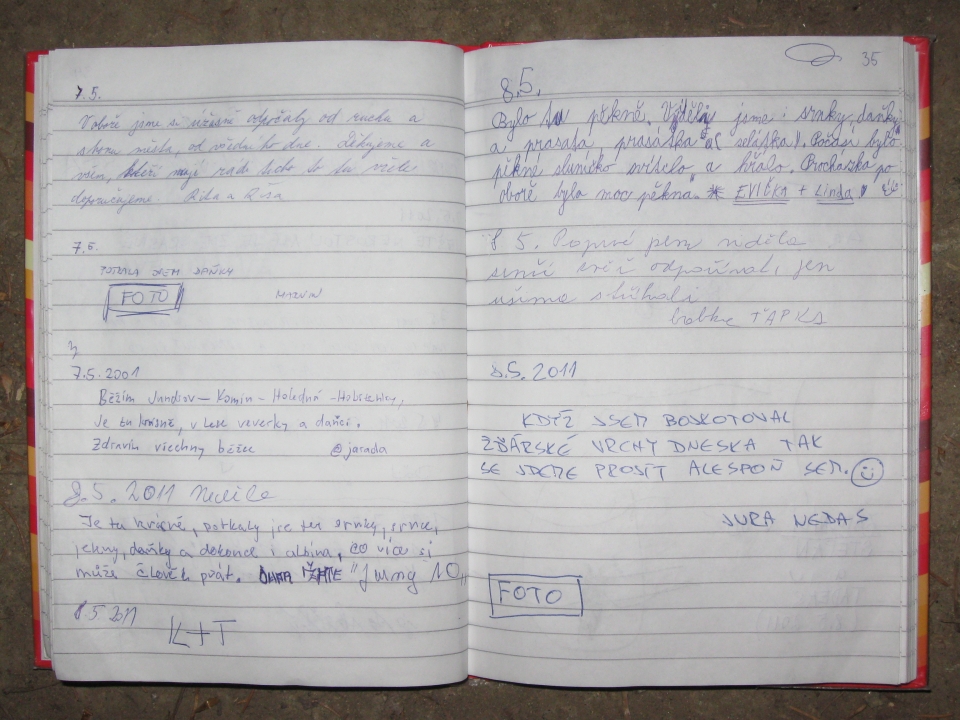 7.5.
V oboře jsme si úžasně odpočaly od ruchu a
shonu města, od všedního dne. Děkujeme a
všem, kteří mají rádi ticho to tu vřele
doporučujeme. Rita a Ríša
7.5.
POTKALA JSEM DAŇKY
FOTO
MARVIN
7.5.2001
Běžím Jundrov - Komín - Holedná - Holásenky,
Je tu krásně, v lese veverky a daňci.
Zdravím všechny běžce @jarada
8.5. 2011 Neděle
Je tu krásně, potkaly jsme tu srnky, srnce,
jeleny, daňky a dokonce i albína, co více si
může člověk přát. "Jumg 10"
8.5.2011
K+T
35
8.5.
Bylo tu pěkně. Viděli jsme i srnky, daňky
a prasata, prasátka "a( selátka)". Počasí bylo
pěkné sluníčko svítilo a hřálo. Procházka po
oboře byla moc pěkná. * EVIČKA + Linda
8 5. Poprvé jsem viděla
smečí odpočívat, jen
ušima stříhali
babka ŤAPKA
8.5. 2011
KDYŽ JSEM BOJKOTOVAL
ŽĎÁRSKÉ VRCHY DNESKA TAK
SE JDEME PROJÍT ALESPOŇ SEM. ☺
JURA NEDAS
FOTO